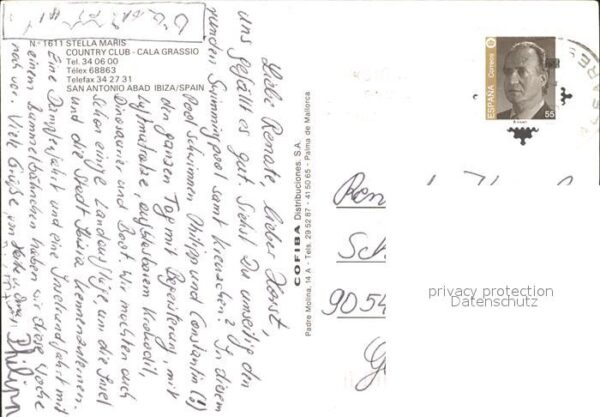 Nº 1611 STELLA MARIS
COUNTRY CLUB - CALA GRASSIO
Tel. 34 06 00
Télex 68863
Telefax 34 27 31
SAN ANTONIO ABAD IBIZA/SPAIN
Liebe Renate, lieber Horst,
uns gefällt es gut. Siehst Du umseitig den
runden Swimmingpool samt Kreuzchen? In diesem
Pool schwimmen Philipp und Constantin (!)
den ganzen Tag mit Begeisterung, mit
Luftmatratze, aufblasbarem Krokodil,
Dinosaurier und Boot. Wir machten auch
schon einige Landausflüge, um die Insel
und die Stadt Ibiza kennenzulernen.
Eine Dampferfahrt und eine Inselrundfahrt mit
einem Bummelbähnchen haben wir diese Woche
noch vor. Viele Grüße von
Philipp
COFIBA Distribuciones S.A.
Padre Molina, 14 A - Tels. 29 52 87 - 41 50 65 - Palma de Mallorca
ESPAÑA
Correos
55
Ren
Sch
9054
privacy protection
Datenschutz